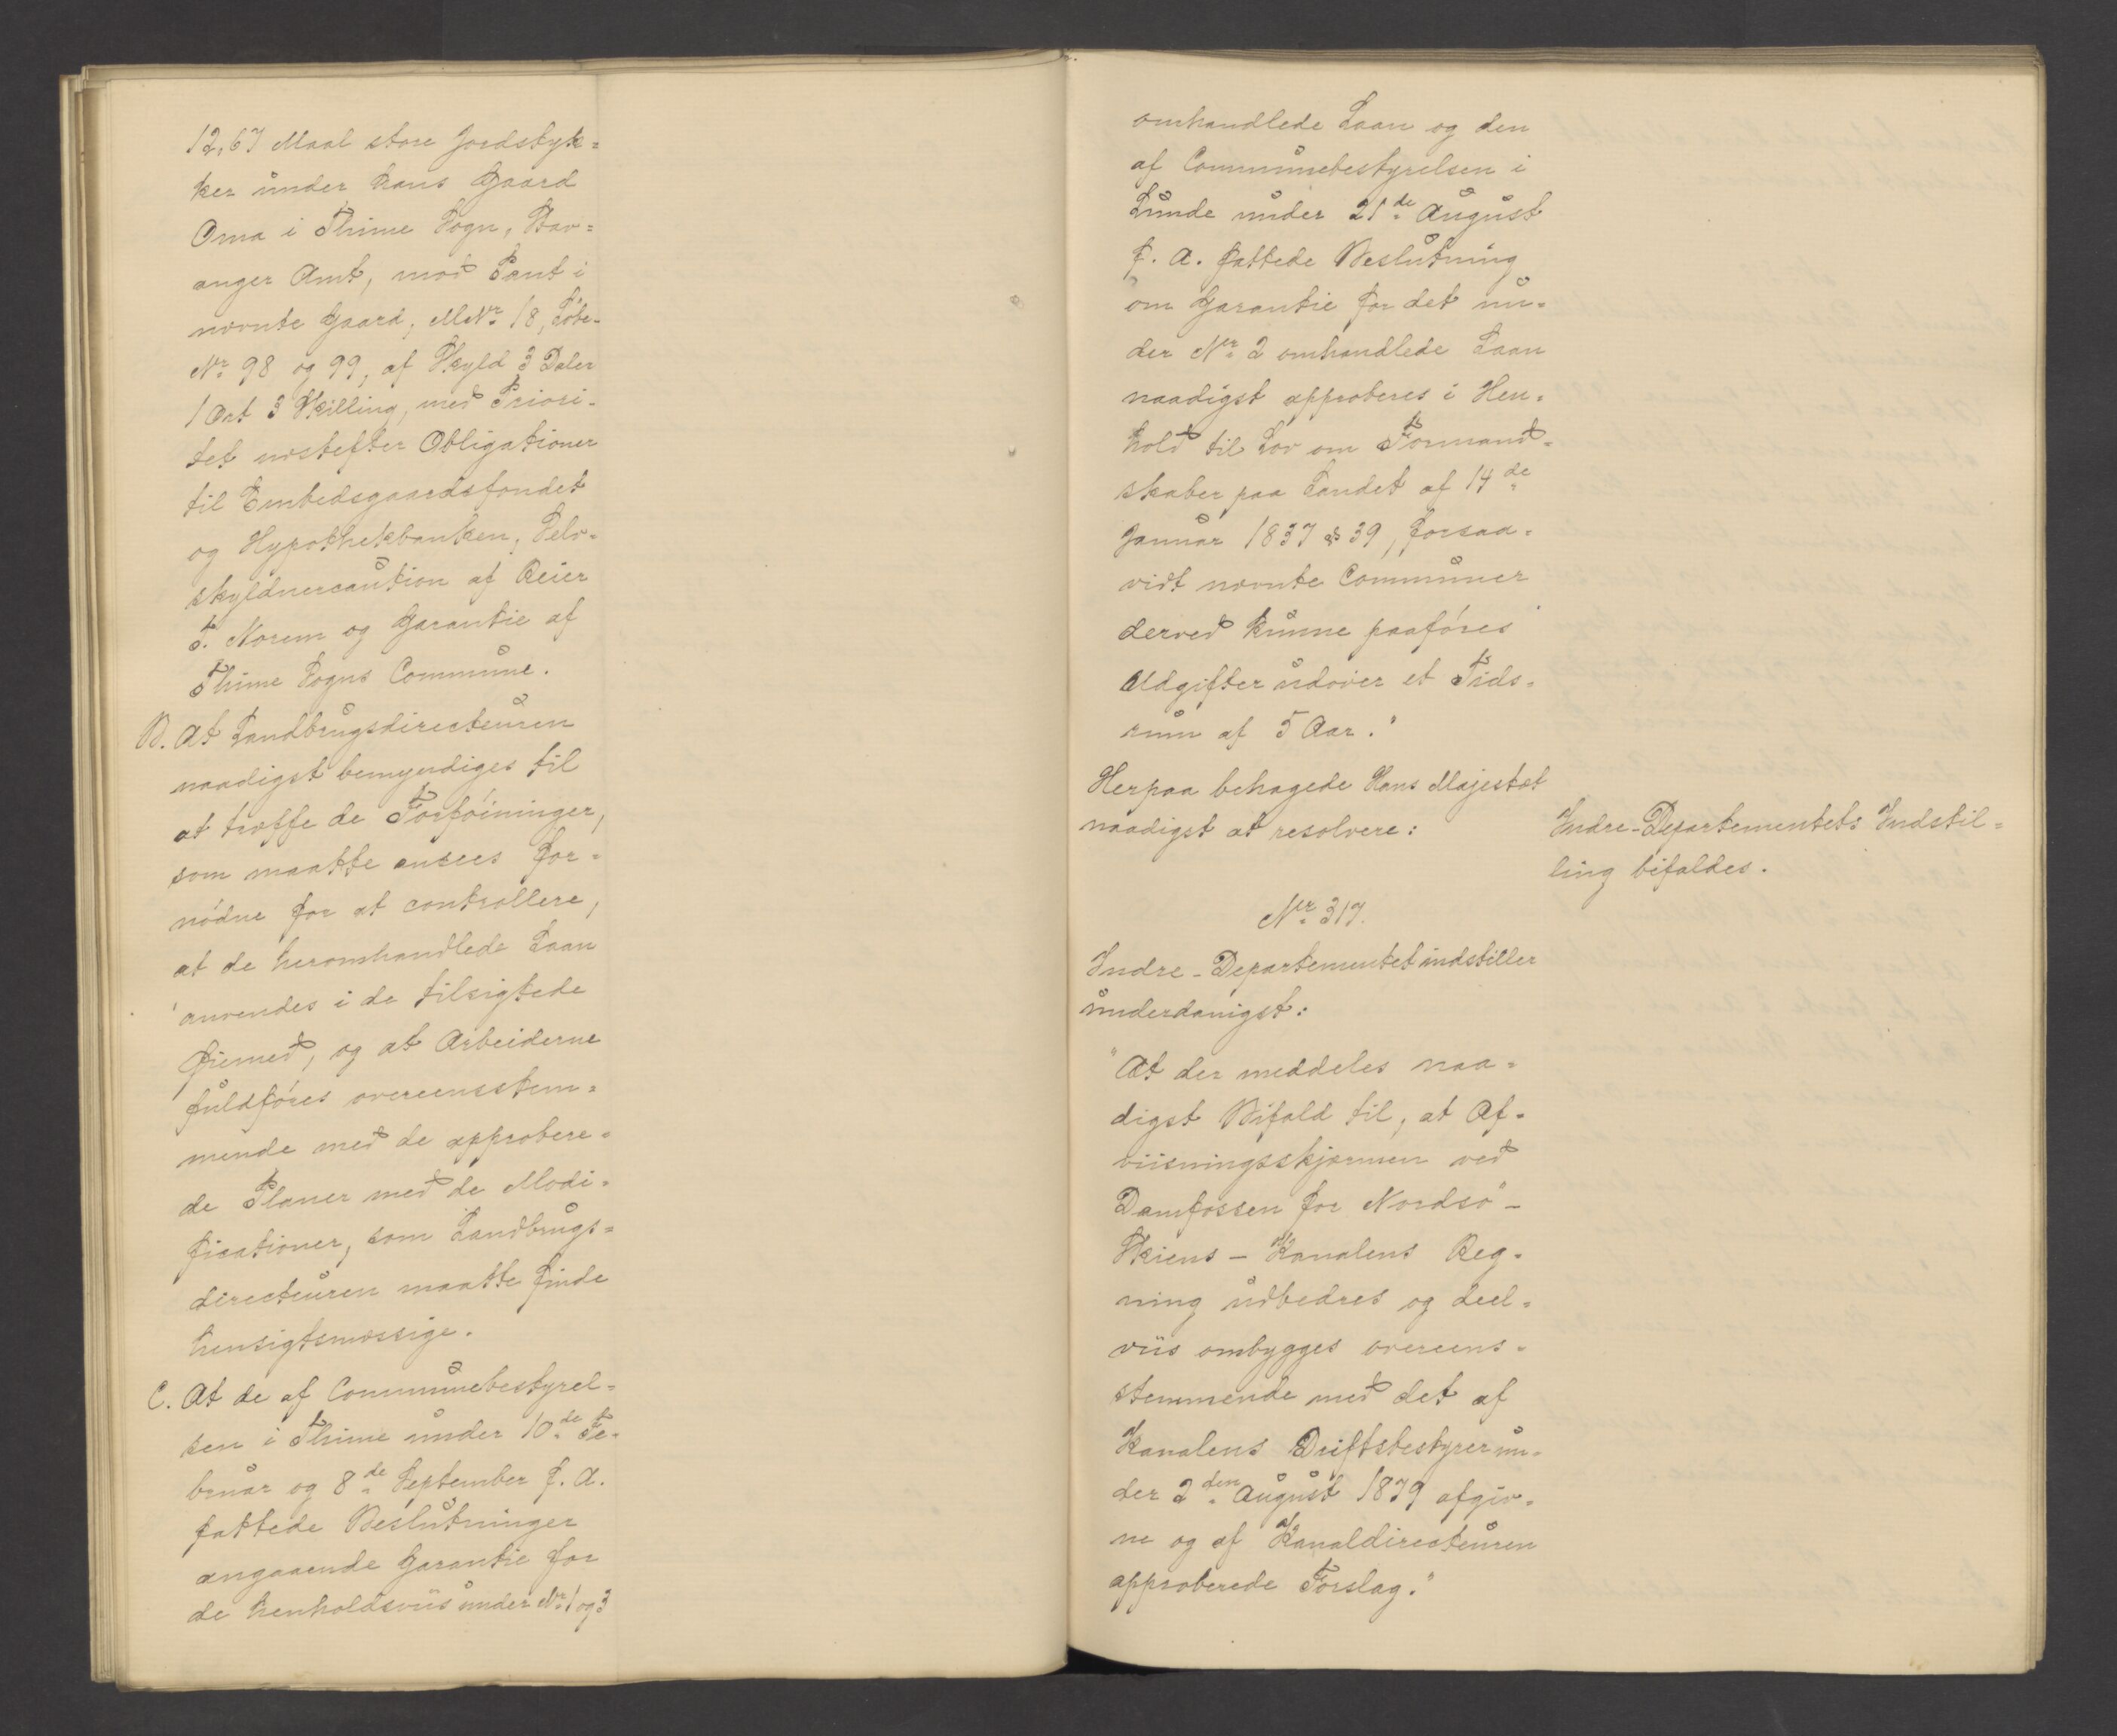 12,67 Maal store Jordstyk=
ker under hans Gaard
Oma i Thime Sogn, Stav=
anger Amt, mod Pant i
nævnte Gaard, M.Nr. 18, Løbe-
Nr. 98 og 99, af Skyld 3 Daler
1 Ort 3 Skilling, med Priori-
tet næstefter Obligationer
til Embedsgaardsfondet
og Hypothekbanken, Selv-
skyldnercaution af Reier
T. Norem og Garantie af
Thime Sogns Commune.
B. At Landbrugsdirecteuren
naadigst bemyndiges til
at træffe de Forføininger,
som maatte ansees for=
nødne for at controllere,
at de heromhandlede Laan
anvendes i de tilsigtede
Øiemed, og at Arbeiderne
fuldføres overeensstem=
mende med de approbere=
de Planer med de Modi=
ficationer, som Landbrugs=
directeuren maatte finde
hensigtsmæssige.
C. At de af Communebestyrel=
sen i Thime under 10de Fe-
bruar og 8de September f. A.
fattede Beslutninger
angaaende Garantie for
de henholdsviis under Nr. 1 og 3
omhandlede Laan og den
af Communebestyrelsen i
Lunde under 21de August
f. A. fattede Beslutning
om Garantie for det un-
der Nr. 2 omhandlede Laan
naadigst approberes i Hen-
hold til Lov om Formand-
skaber paa Landet af 14de
Januar 1837 § 39, forsaa-
vidt nævnte Communer
derved kunne paaføres
Udgifter udover et Tids-
rum af 5 Aar."
Herpaa behagede Hans Majestæt
naadigst at resolvere:
Indre-Departementets Indstil=
ling bifaldes.
Nr. 317.
Indre-Departementet indstiller
underdanigst:
"At der meddeles naa=
digst Bifald til, at Af-
viisningsskjærmen ved
Damfossen for Nordsø-
Skiens-Kanalens Reg-
ning udbedres og deel-
viis ombygges overeens-
stemmende med det af
Kanalens Driftsbestyrer un-
der 2den August 1879 afgiv-
ne og af Kanaldirecteuren
approberede Forslag."